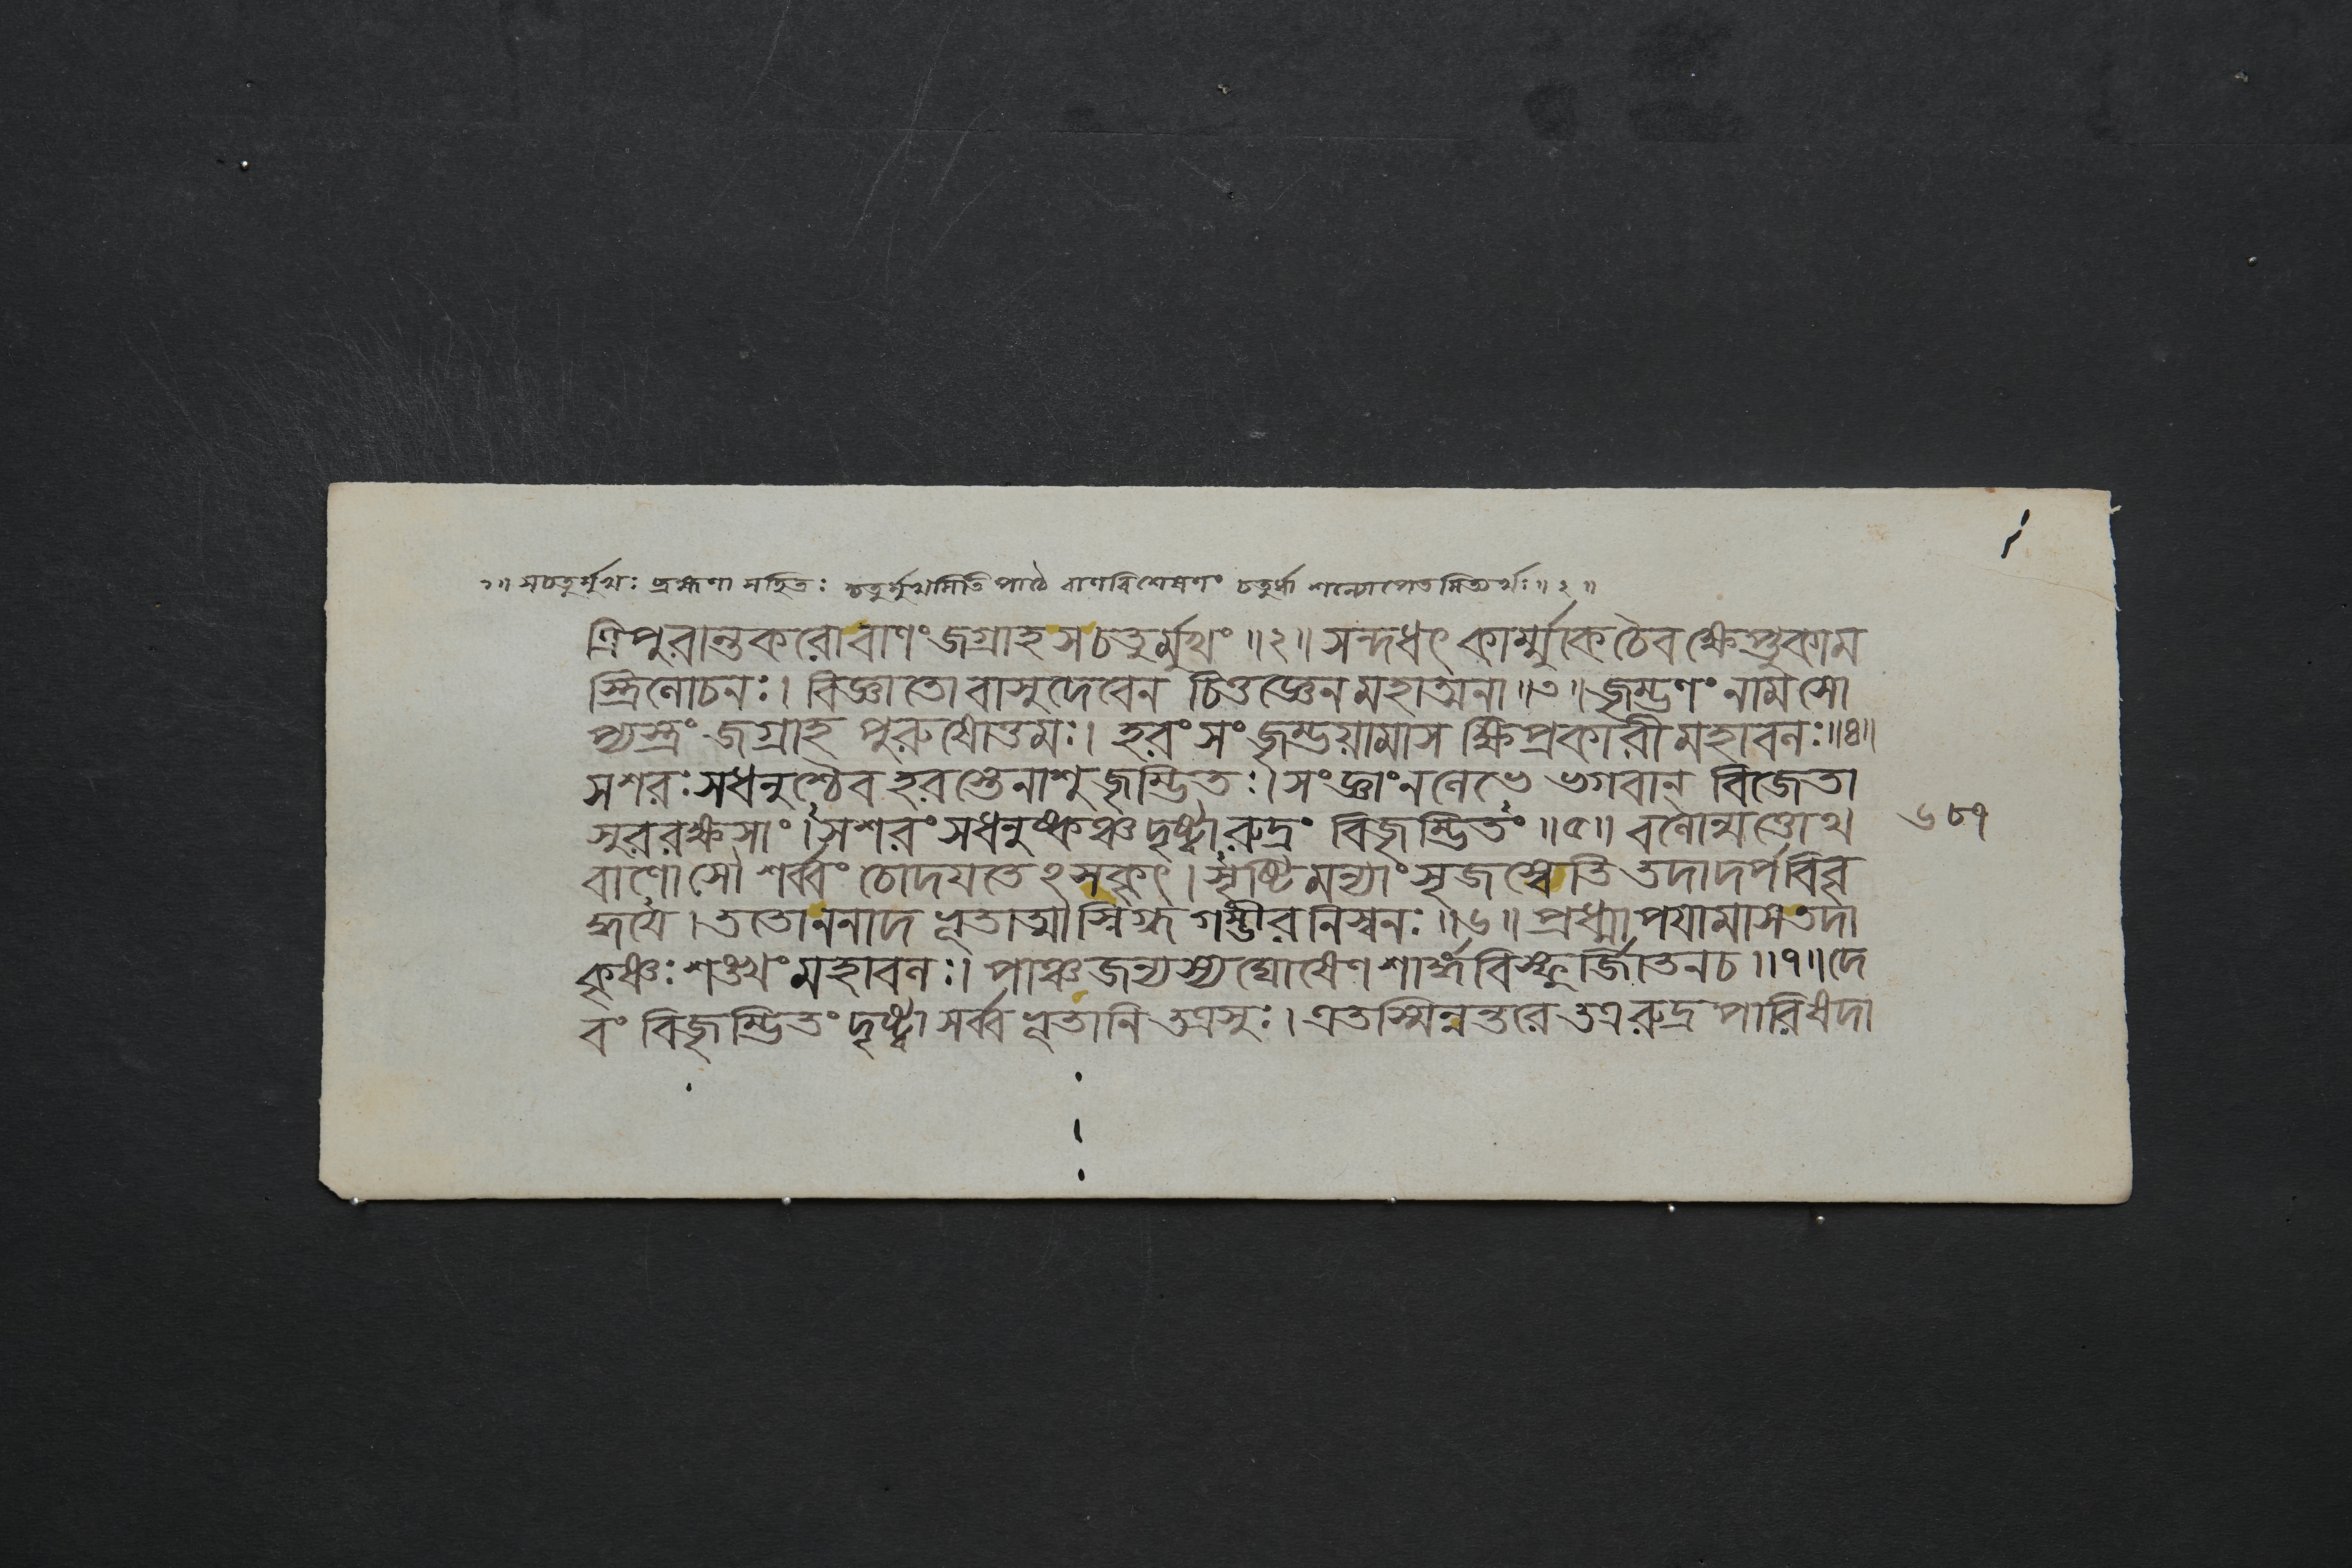 ২॥ সচতুর্মুখঃ ব্রহ্মণা সহিতঃ চতুর্মুখমিতি পাঠে বাণবিশেষণং চতুর্ধা শল্যোপেতমিত্যর্থঃ॥২॥
ত্রিপুরান্তকরো বাণং জগ্রাহ স চতুর্মুখং ॥২॥ সন্দধৎ কার্ম্মুকে চৈব ক্ষেপ্তুকাম
স্ত্রিলোচনঃ। বিজ্ঞাতো বাসুদেবেন চিত্তজ্ঞেন মহাত্মনা ॥৩॥ জৃম্ভণং নাম সো
প্যস্ত্রং জগ্রাহ পুরুষোত্তমঃ। হরং সংজৃম্ভয়ামাস ক্ষিপ্রকারী মহাবলঃ॥৪॥
সশরঃ সধনুশ্চৈব হরস্তেনাশু জৃম্ভিতঃ। সংজ্ঞাং ন লেভে ভগবান্ বিজেতা
সুররক্ষসাং। সশরং সধনুষ্কঞ্চ দৃষ্ট্বা রুদ্রং বিজৃম্ভিতং ॥৫॥ বলোন্মত্তোথ
বাণোসৌ শর্ব্বং চোদয়তেঽসকৃৎ। সৃষ্টিমন্যাং সৃজস্বেতি তদা দর্পবিবৃ
দ্ধয়ে। ততো ননাদ ভূতাত্মা স্নিগ্ধগম্ভীরনিস্বনঃ ॥৬॥ প্রধ্মাপয়ামাস তদা
কৃষ্ণঃ শঙ্খং মহাবলঃ। পাঞ্চজন্যস্য ঘোষেণ শার্ঙ্গবিস্ফূর্জ্জিতেন চ ॥৭॥ দে
বং বিজৃম্ভিতং দৃষ্ট্বা সর্ব্বভূতানি তত্রসুঃ। এতস্মিন্নন্তরে তত্র রুদ্রপারিষদা
৬৮৭